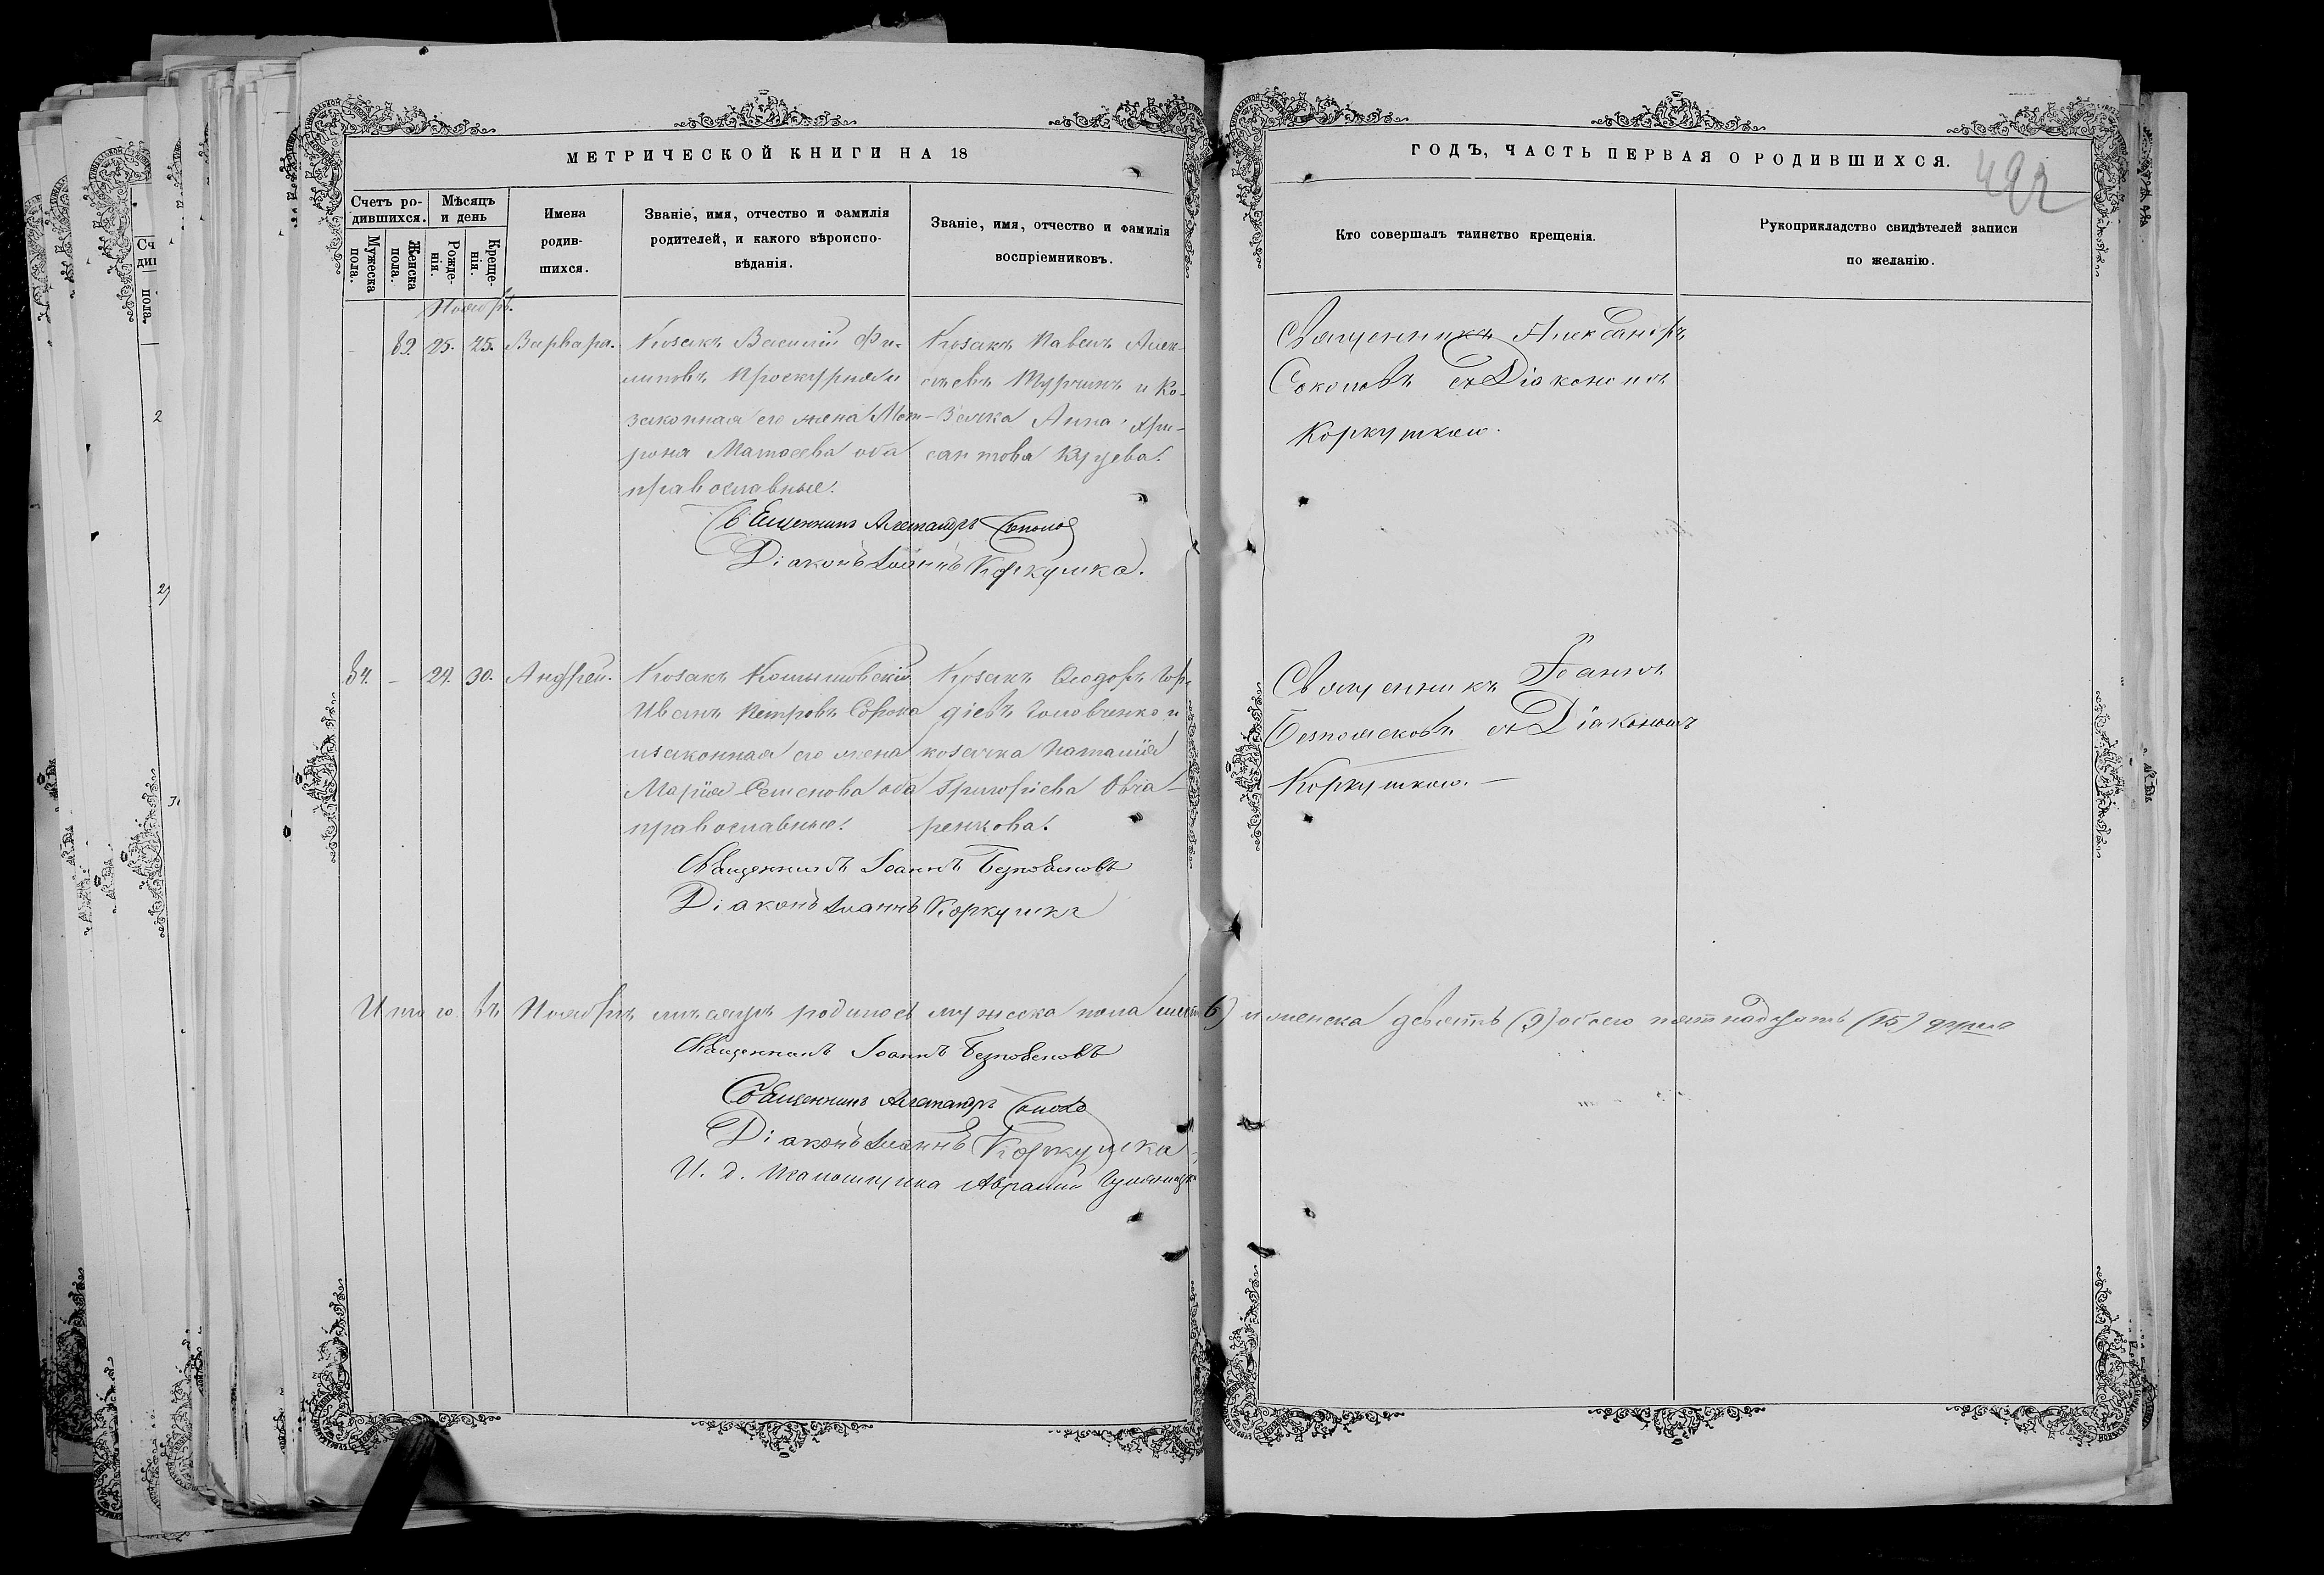 МЕТРИЧЕСКОЙ КНИГИ НА 18
ГОДЪ, ЧАСТЬ ПЕРВАЯ О РОДИВШИХСЯ.
492
Счетъ ро-
дившихся.
Мужеска
пола.
Женска
пола.
Мѣсяцъ
и день
Рожде-
нія.
Креще-
нія.
Имена
родив-
шихся.
Званіе, имя, отчество и фамилія
родителей, и какого вѣроиспо-
вѣданія.
Званіе, имя, отчество и фамилія
воспріемниковъ.
Кто совершалъ таинство крещенія.
Рукоприкладство свидѣтелей записи
по желанію.
Ноябрь.
25. 25. Варвара.
Козакъ Василій Фи-
липовъ Проскурня и
законная его жена Мат-
рона Матѳеева оба
православные.
Козакъ Павелъ Алек-
сѣевъ и Ко-
зачка Анна Хри-
сантова
Священникъ Александръ
Соколовъ съ Діакономъ
Коркушкою.
Священникъ Александръ Соколов
Діаконъ Іоаннъ Коркушка.
84. - 29. 30. Андрей.
Козакъ
Иванъ Петровъ Сорока
и законная его жена
Марія Семенова оба
православные.
Козакъ Ѳеодоръ Гор-
діевъ Головченко и
козачка Наталія
Григоріева Овча-
ренкова.
Священникъ Іоаннъ
съ Діакономъ
Коркушкою.
Священникъ Іоаннъ
Діаконъ Іоаннъ Коркушка
Итого въ Ноябрѣ мѣсяцѣ родилось мужеска пола шесть (6) и женска девять (9) обоего пятнадцать (15) душъ
Священникъ Іоаннъ
Священникъ Александръ
Діаконъ Іоаннъ Коркушка
И. д. Псаломщика Аврамій